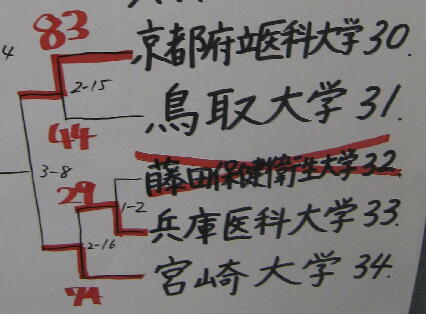 83
4
京都府立医科大学 30.
2-15
鳥取大学 31.
44
藤田保健衛生大学 32
3-8
29
1-2
兵庫医科大学 33.
2-16
宮崎大学 34.
74